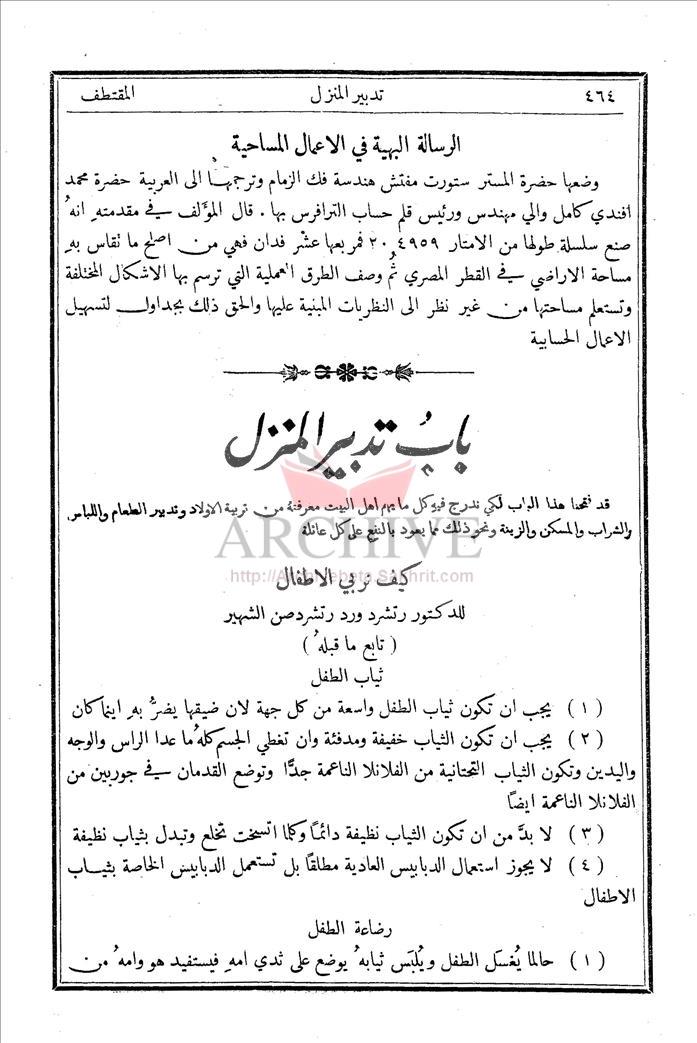 ٤٦٤
تدبير المنزل
المقتطف
الرسالة البهية في الاعمال المساحية
وضعها حضرة المستر ستورت مفتش هندسة فك الزمام وترجمها الى العربية حضرة محمد
افندي كامل والي مهندس ورئيس قلم حساب الترافرس بها . قال المؤلف في مقدمته انهُ
صنع سلسلة طولها من الامتار ٤٩٥٩ ٢٠ فمربعها عشر فدان فهي من اصلح ما نقاس بهِ
مساحة الاراضي في القطر المصري ثم وصف الطرق العملية التي ترسم بها الاشكال المختلفة
وتستعلم مساحتها من غير نظر الى النظريات المبنية عليها والحق ذلك بجداول لتسهيل
الاعمال الحسابية
بابُ تدبير المنزل
قد فتحنا هذا الباب لكي ندرج فيهِ كل ما يهم اهل البيت معرفتهُ من تربية الاولاد وتدبير الطعام واللباس
والشراب والمسكن والزينة ونحو ذلك مما يعود بالنفع على كل عائلة
ARCHIVE
http://Archivebeta.Sakhrit.com
كيف نربي الاطفال
للدكتور رتشرد ورد رتشردصن الشهير
( تابع ما قبلهُ )
ثياب الطفل
( ١ ) يجب ان تكون ثياب الطفل واسعة من كل جهة لان ضيقها يضرُّ بهِ اينما كان
( ٢ ) يجب ان تكون الثياب خفيفة ومدفئة وان تغطي الجسم كلهُ ما عدا الراس والوجه
واليدين وتكون الثياب التحتانية من الفلانلا الناعمة جدًّا وتوضع القدمان في جوربين من
الفلانلا الناعمة ايضًا
( ٣ ) لا بدَّ من ان تكون الثياب نظيفة دائمًا وكلما اتسخت تخلع وتبدل بثياب نظيفة
( ٤ ) لا يجوز استعمال الدبابيس العادية مطلقًا بل تستعمل الدبابيس الخاصة بثياب
الاطفال
رضاعة الطفل
( ١ ) حالما يُغسل الطفل ويُلبَس ثيابهُ يوضع على ثدي امهِ فيستفيد هو وامهُ من